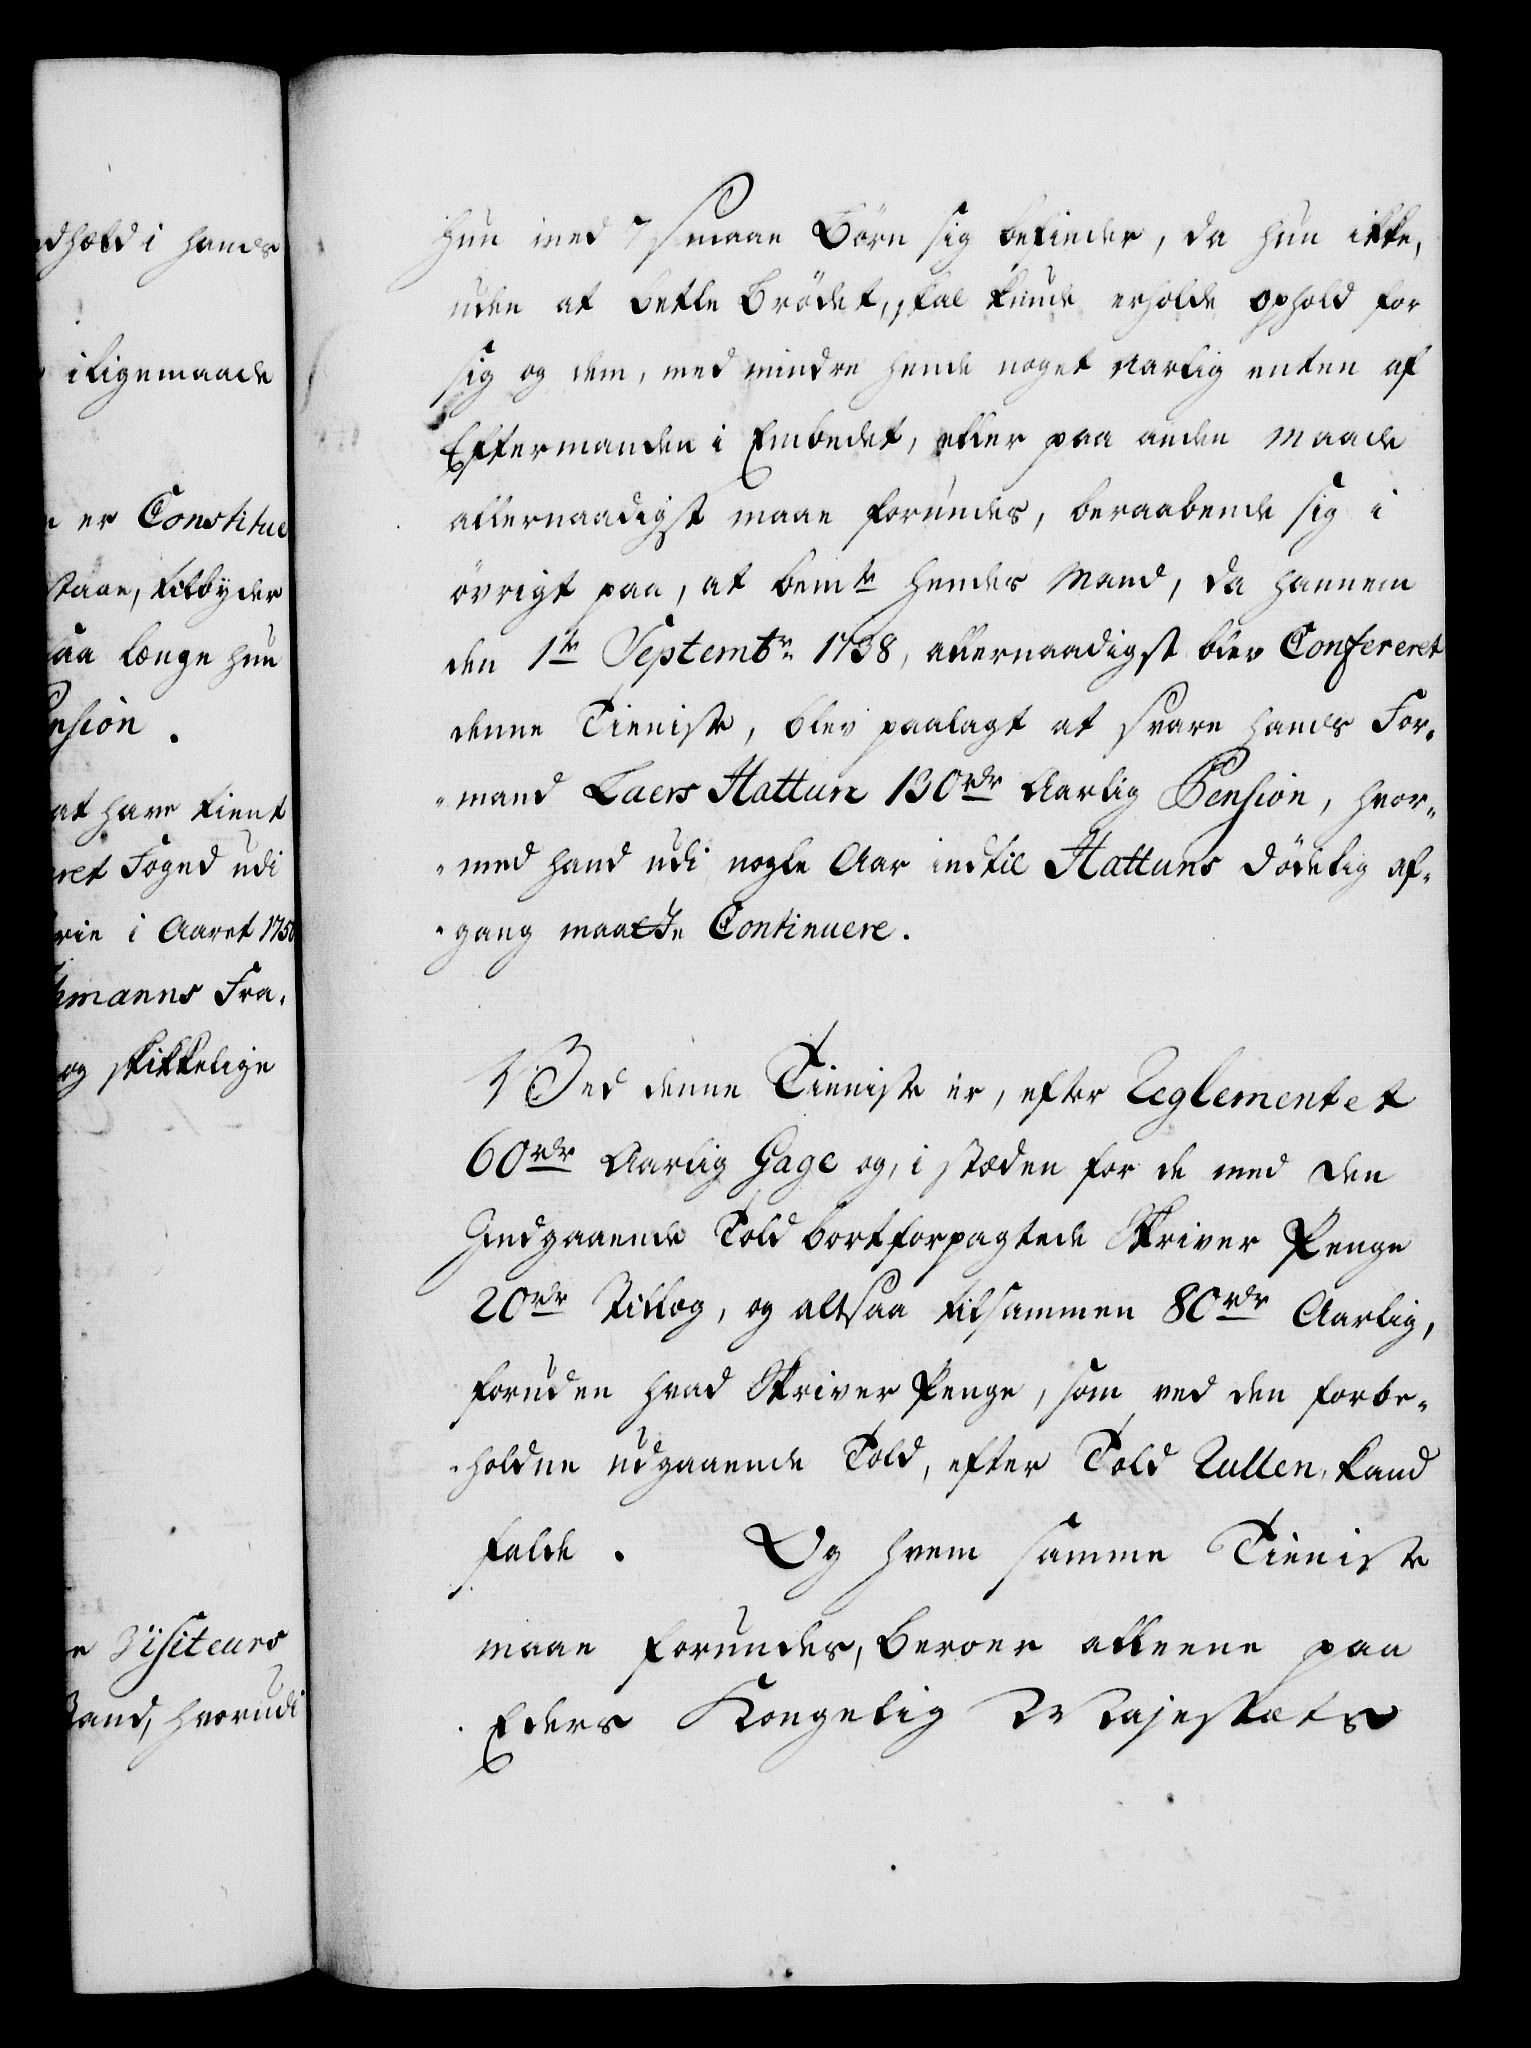 dhold i hands
iligemaade
er Constitue
staae, tilbyder
saa længe hun
nsion.
at have tient
ret Foged udi
rie i Aaret 1750
manns Fra-
og skikkelige
Visiteurs
Stand, hvorudi
hun med 7 smaae Börn sig befinder, da hun ikke,
uden at betle Brödet, skal kunde erholde ophold for
sig og dem, med mindre hende noget aarlig enten af
Eftermanden i Embedet, eller paa anden Maade
allernaadigst maae forundes, beraabende sig i
övrigt paa, at bemte hendes Mand, da hannem
den 1te Septembr. 1738, allernaadigst blev Confereret
denne Tieniste, blev paalagt at svare hands For-
mand Laers Hattun 130rdr Aarlig Pension, hvor-
med hand udi nogle Aar indtil Hattuns Dödelig af-
gang maatte Continuere.
Ved denne Tieniste er, efter Reglementet
60rdr Aarlig Gage og, i stæden for de med den
Indgaaende Told bortforpagtede Skriver Penge
20rdr Tillæg, og altsaa tilsammen 80rdr Aarlig,
foruden hvad Skriver Penge, som ved den forbe-
holdne udgaaende Told, efter Told Rullen, kand
falde. Og hvem samme Tieniste
maae forundes, beroer alleene paa
Eders Kongelig Majestæts